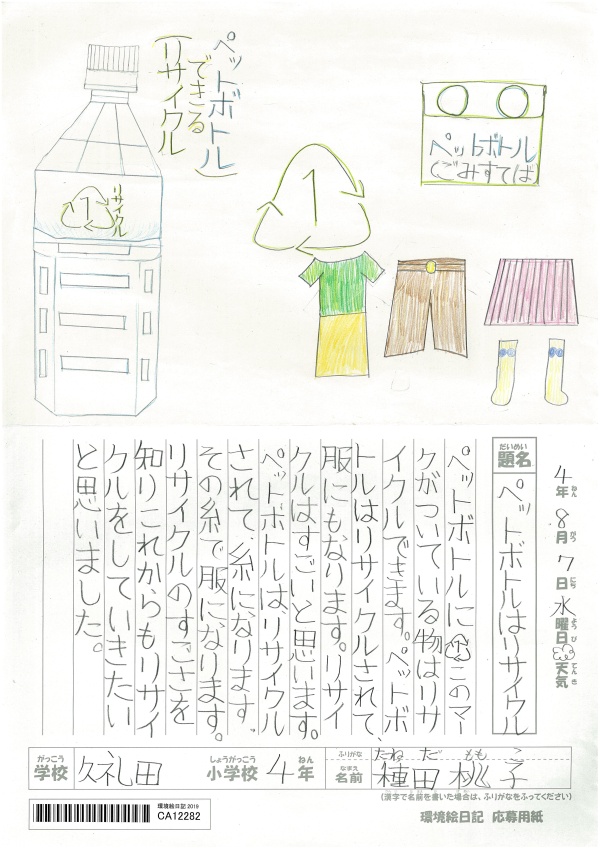 ペットボトル
できる
(リサイクル)
1
リサイクル
1
ペットボトル
(ごみすてば
4年 8月 7日 水曜日 天気
ねん がつ にち ようび てんき
だいめい
題名
ペットボトルはリサイクル
ペットボトルにこのマー
クがついている物はリサ
イクルできます。ペットボ
トルはリサイクルされて、
服にもなります。リサイ
クルはすごいと思います。
ペットボトルは、リサイクル
されて、糸になります。
その糸で服になります。
リサイクルのすごさを
知りこれからもリサイ
クルをしていきたい
と思いました。
がっこう しょうがっこう ねん
学校 久礼田 小学校 4年
ふりがな たね だ もも こ
なまえ
名前 種田 桃子
(漢字で名前を書いた場合は、ふりがなをふってください)
環境絵日記 2019
CA12282
環境絵日記 応募用紙